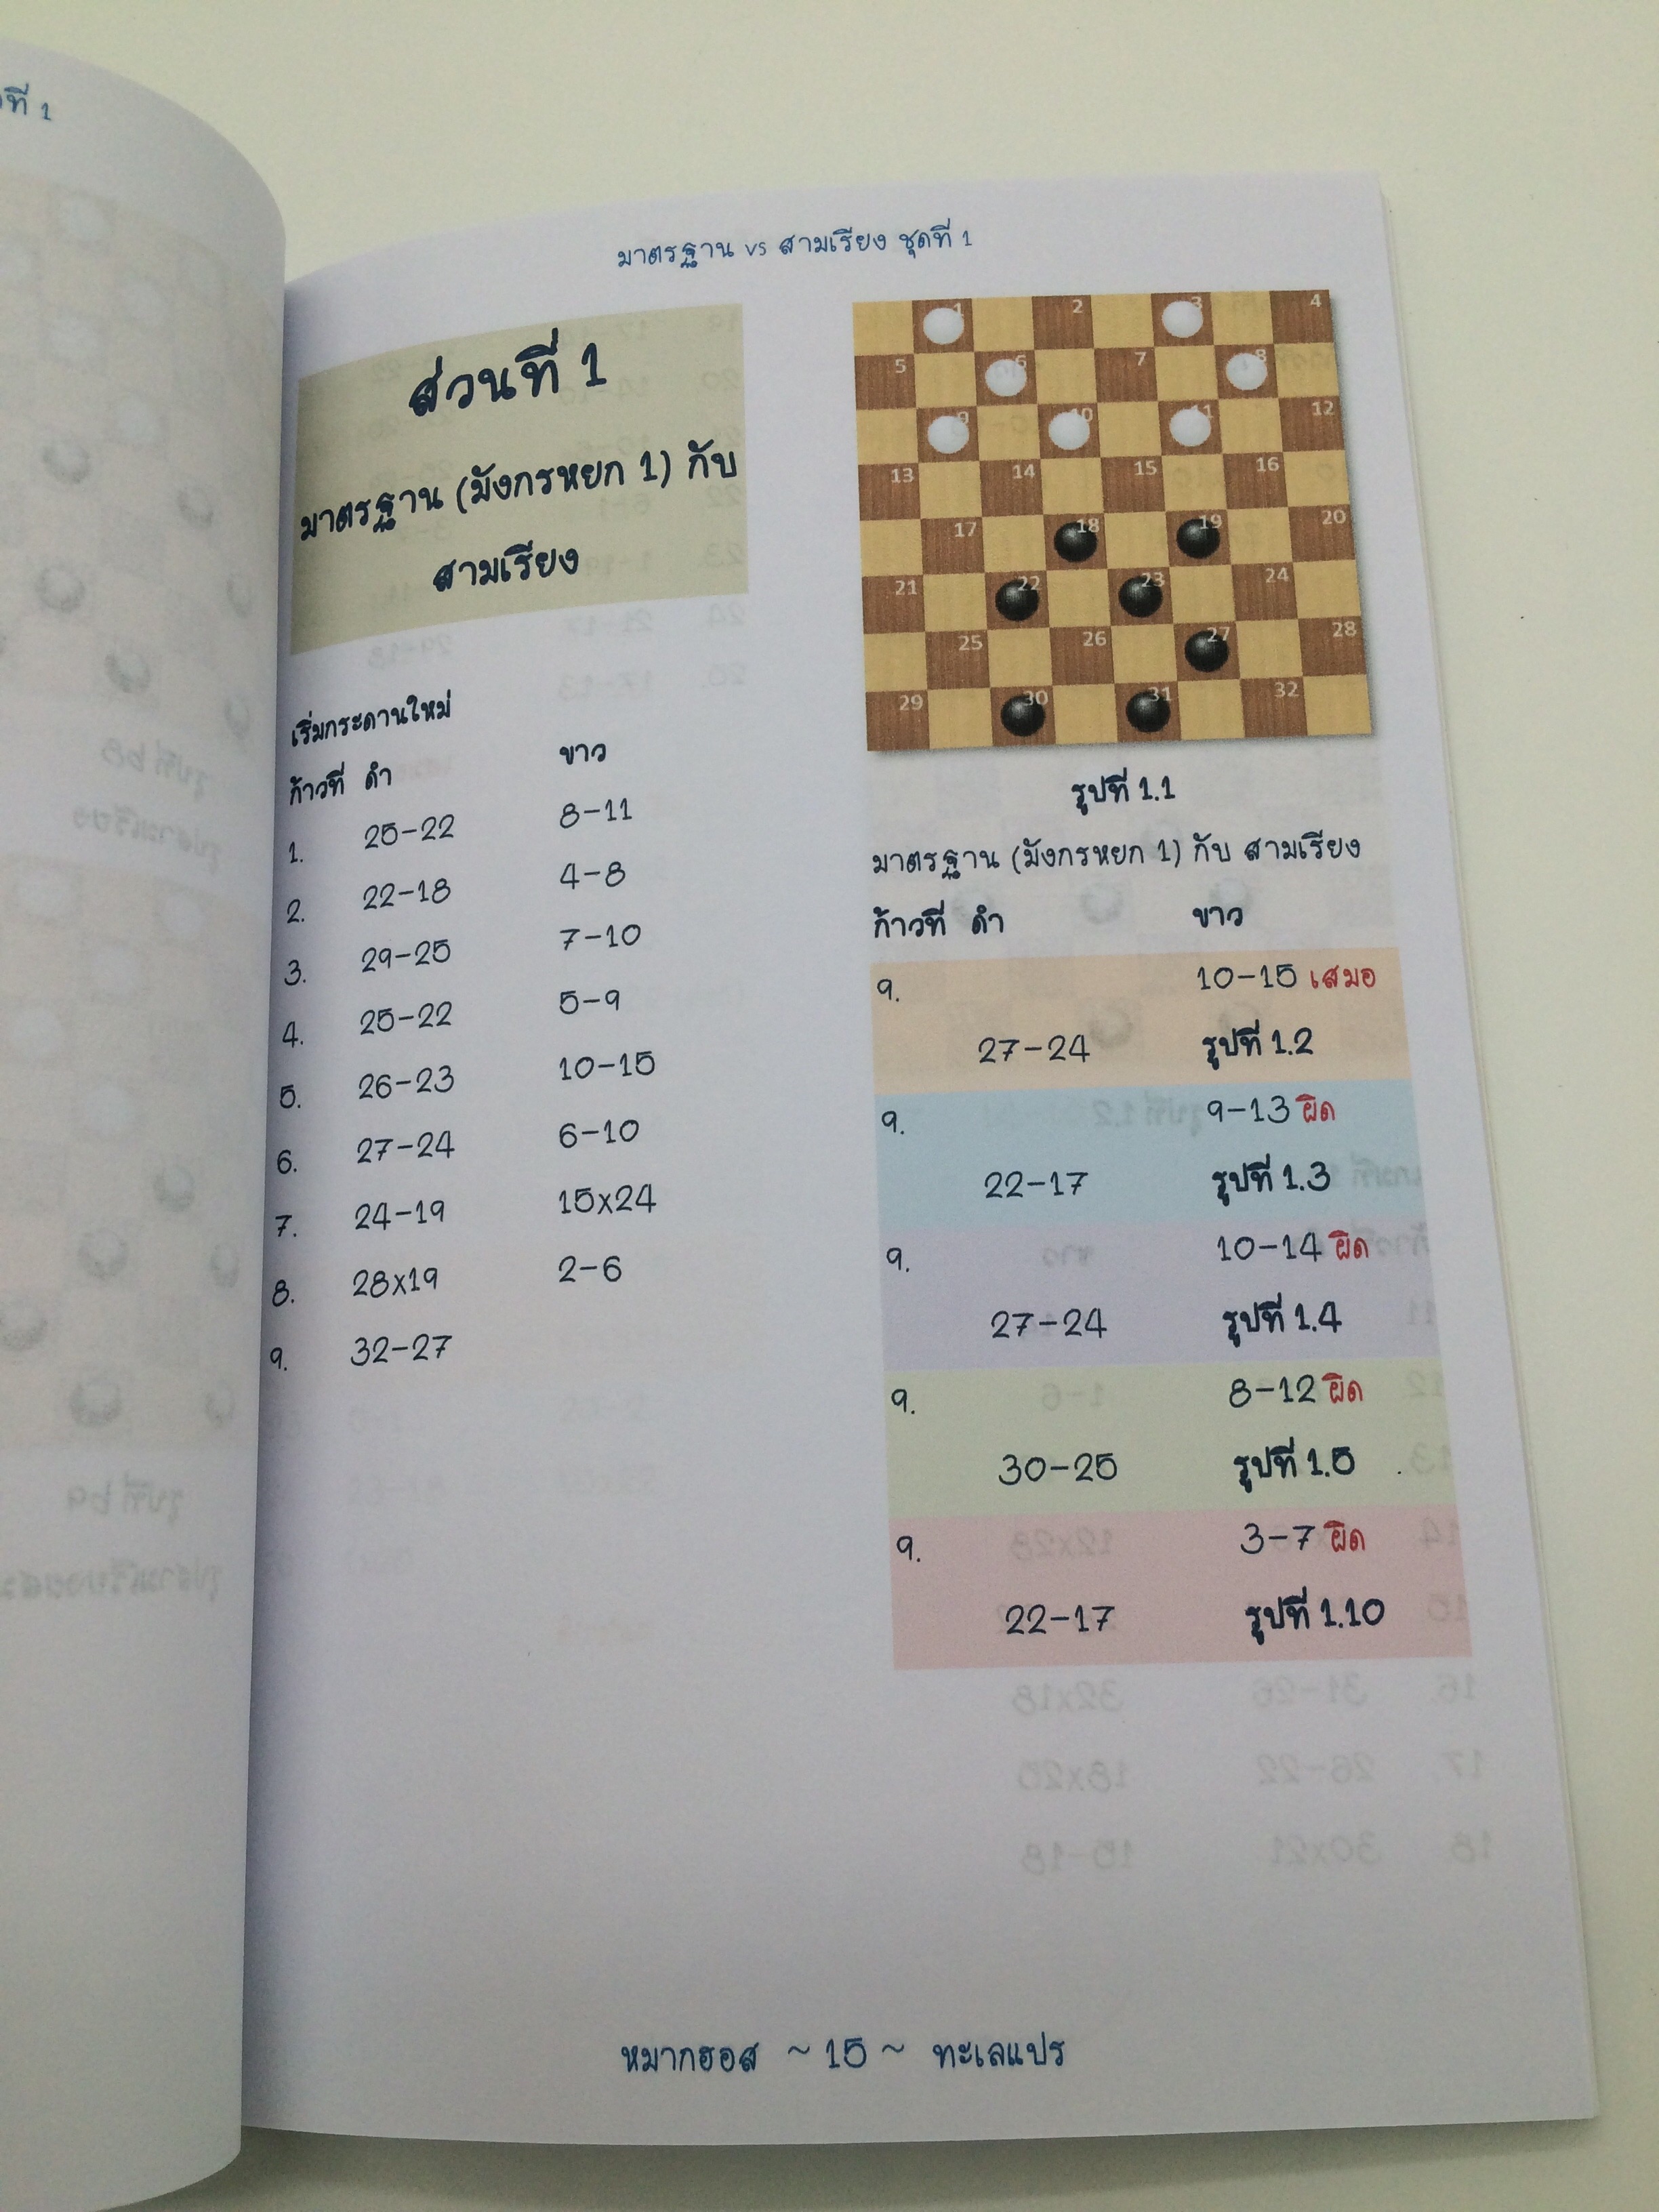 ที่ 1
มาตรฐาน vs สามเรียง ชุดที่ 1
ส่วนที่ 1
มาตรฐาน (มังกรหยก 1) กับ
สามเรียง
เริ่มกระดานใหม่
ก้าวที่ ดำ ขาว
1. 25-22 8-11
2. 22-18 4-8
3. 29-25 7-10
4. 25-22 5-9
5. 26-23 10-15
6. 27-24 6-10
7. 24-19 15x24
8. 28x19 2-6
9. 32-27
1 2 3 4
5 6 7 8
9 10 11 12
13 14 15 16
17 18 19 20
21 22 23 24
25 26 27 28
29 30 31 32
รูปที่ 1.1
มาตรฐาน (มังกรหยก 1) กับ สามเรียง
ก้าวที่ ดำ ขาว
9. 10-15 เสมอ
27-24 รูปที่ 1.2
9. 9-13 ผิด
22-17 รูปที่ 1.3
9. 10-14 ผิด
27-24 รูปที่ 1.4
9. 8-12 ผิด
30-25 รูปที่ 1.5
9. 3-7 ผิด
22-17 รูปที่ 1.10
หมากฮอส ~ 15 ~ ทะเลแปร